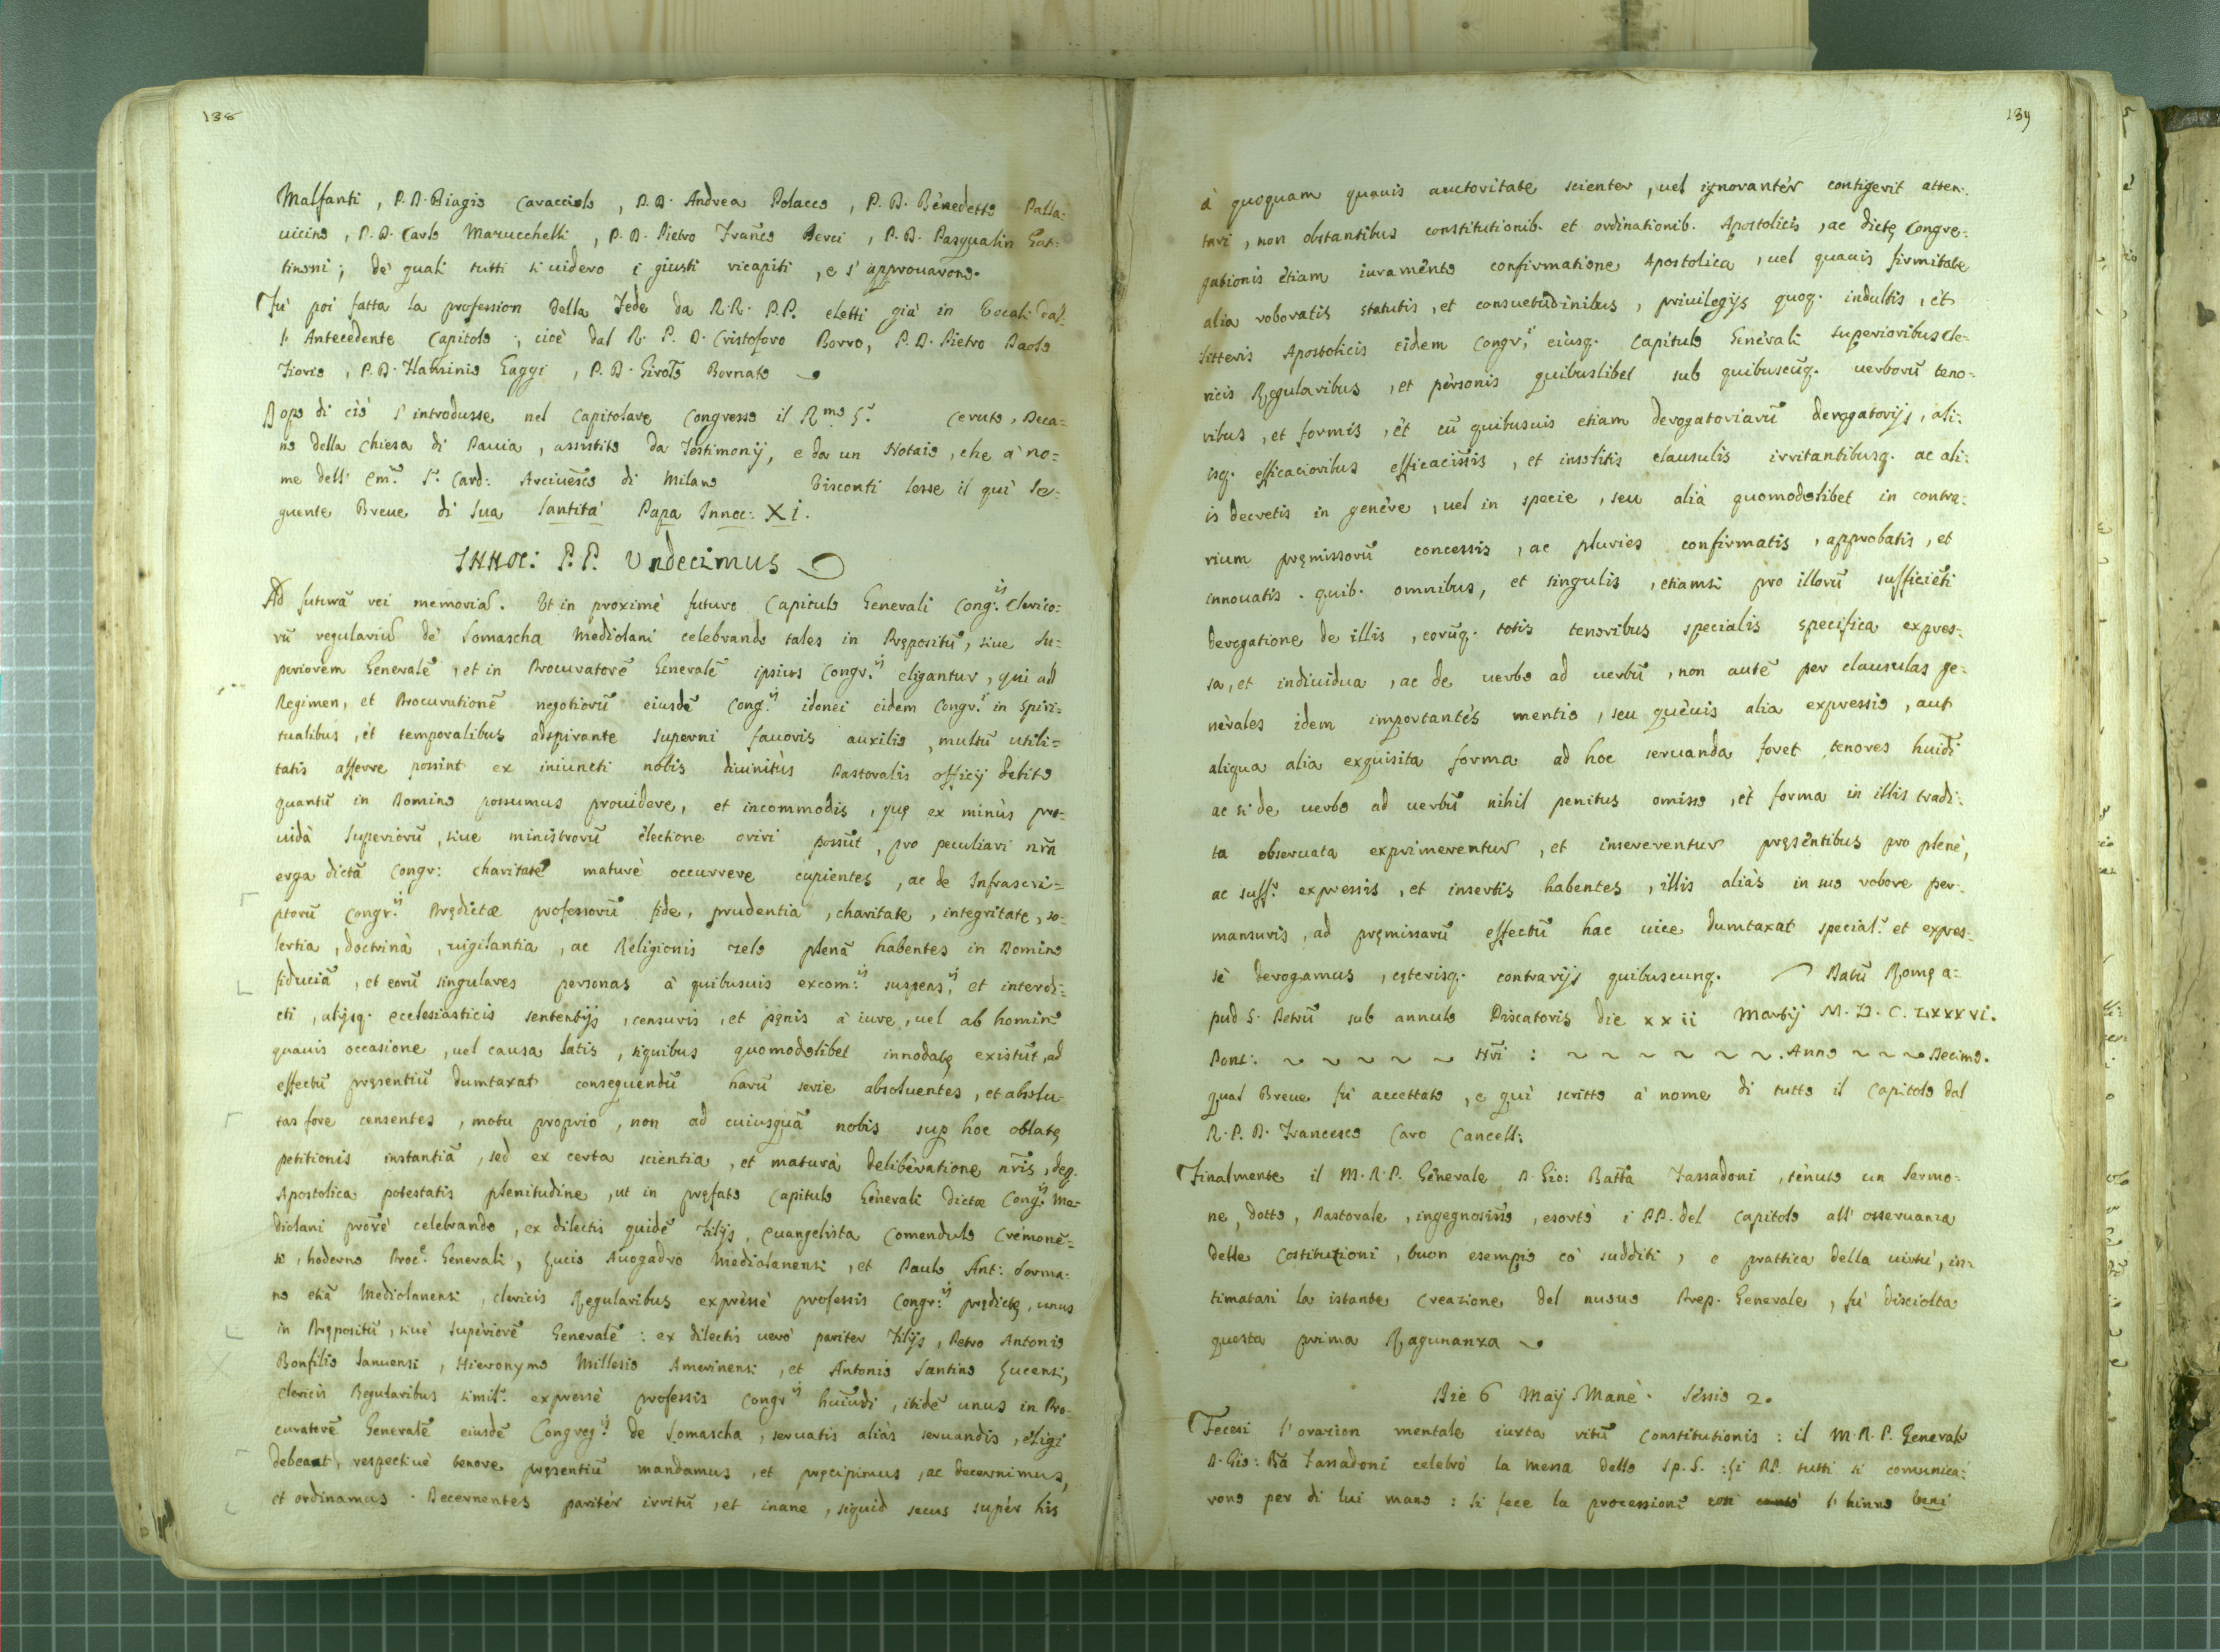 138
Malfanti, P. D. Biagio Caracciolo, P. D. Andrea Polacco, P. D. Benedetto Palla:
uicino, P. D. Carlo Marucchelli, P. D. Pietro Franc̃o Serci, P. D. Pasqualin
tinoni; de' quali tutti si uidero i giusti ricapiti, e s'approuarono.
Fù poi fatta la profession della Fede da R.R. P.P. eletti già in Vocali dal:
l'Antecedente Capitolo; cioè dal R. P. D. Cristoforo Borro, P. D. Pietro Paolo
Fiorio, P. D. Flaminio Gaggi, P. D. Girol̃o Bornato
Dopo di ciò s'introdusse nel Capitolare Congresso il R.mo S.r Ceruto, Deca=
no della Chiesa di Pauia, assistito da Testimonij, e da un Notaio, che a' no=
me dell' Em̃o S.r Card: Arciuesco di Milano Visconti lesse il quì se=
guente Breue di Sua Santità Papa Innoc: XI.
INNOC: P.P. Undecimus
Ad futurã rei memoriã. Ut in proximè futuro Capitulo Generali Cong.is Clerico:
rũ regulariũ de Somascha Mediolani celebrando tales in Prępositũ, siue Su=
periorem Generalẽ, et in Procuratorẽ Generalẽ ipsius Congr.is eligantur, qui ad
Regimen, et Procurationẽ negotiorũ eiusdẽ Cong.is idonei eidem Congr.i in spiri=
tualibus, et temporalibus adspirante superni fauoris auxilio, multũ utili=
tatis afferre possint ex iniuncti nobis diuinitùs Pastoralis officij debito
quantũ in Domino possumus prouidere, et incommodis, quę ex minùs pro=
uidà Superiorũ, siue ministrorũ electione oriri possũt, pro peculiari nrã
erga dictã Congr: charitatẽ maturè occurrere cupientes, ac de Infrascri=
ptorũ Congr.is Prędictæ professorũ fide, prudentia, charitate, integritate, so=
lertia, doctrinà, uigilantia, ac Religionis zelo plenã habentes in Domino
fiduciã, et eorũ singulares personas à quibusuis excom.is suspens.is et interdi=
cti, alijsq. ecclesiasticis sententijs, censuris, et pęnis à iure, uel ab homine
quauis occasione, uel causa latis, siquibus quomodolibet innodatę existũt, ad
effectũ pręsentiũ dumtaxat consequendũ harũ serie absoluentes, et absolu=
tas fore censentes, motu proprio, non ad cuiusquã nobis sup hoc oblatę
petitionis instantiã, sed ex certa scientia, et maturà deliberatione nr̃is, deq.
Apostolica potestatis plenitudine, ut in pręfato Capitulo Generali dictæ Cong.is Me=
diolani prox̃è celebrando, ex dilectis quidẽ Filijs, Euangelista Comendulo Cremonẽ=
si, hoderno Proc.e Generali, Lucio Auogadro Mediolanensi, et Paulo Ant: Sorma:
no etiã Mediolanensi, clericis Regularibus expressè professis Congr.is prędictę, unus
in Prępositũ, siuè Superiorẽ Generalẽ: ex dilectis uerò pariter Filijs, Petro Antonio
Bonfilio Ianuensi, Hieronymo Millesio Amerinensi, et Antonio Santino Lucensi,
clericis Regularibus simil.r expressè professis Congr.is huiũdi, itidẽ unus in Pro=
curatorẽ Generalẽ eiusdẽ Congreg.is de Somascha, seruatis aliàs seruandis, eligi
debeant, respectiuè tenore pręsentiũ mandamus, et pręcipimus, ac decernimus,
et ordinamus. Decernentes paritèr irritũ, et inane, siquid secus supèr his
139
à quoquam quauis auctoritate scienter, uel ignorantèr contigerit atten:
tari, non obstantibus constitutionib. et ordinationib. Apostolicis, ac dictę Congre:
gationis etiam iuramento confirmatione Apostolica, uel quauis firmitate
alia roboratis statutis, et consuetudinibus, priuilegijs quoq. indultis, èt
litteris Apostolicis eidem Congr.i eiusq. Capitulo Generali superioribus cle:
ricis Regularibus, et pèrsonis quibuslibet sub quibuscũq. uerborũ teno:
ribus, et formis, èt cũ quibusuis etiam derogatoriarũ derogatorijs, ali:
isq. efficacioribus efficaciss̃is, et insolitis clausulis irritantibusq. ac ali:
is decretis in genère, uel in specie, seu alià quomodolibet in contra:
rium pręmissorũ concessis, ac pluries confirmatis, approbatis, et
innouatis. quib. omnibus, et singulis, etiamsi pro illorũ sufficiẽti
derogatione de illis, eorũq. totis tenoribus specialis specifica expres:
sa, et indiuidua, ac de uerbo ad uerbũ, non autẽ per clausulas ge:
nèrales idem importantès mentio, seu quèuis alia expressio, aut
aliqua alia exquisita forma ad hoc seruanda foret, tenores huiũdi
ac si de uerbo ad uerbũ nihil penitus omisso, èt forma in illis tradi:
ta obseruata exprimerentur, et insererentur pręsẽntibus pro plenè,
ac suff.r expressis, et insertis habentes, illis aliàs in suo robore per:
mansuris, ad pręmissorũ effectũ hac uice dumtaxat special.r et expres:
sè derogamus, cęterisq. contrarijs quibuscunq. Datũ Romę a:
pud S. Petrũ sub annulo Piscatoris die xxii Martij M. D. C. LXXXVI.
Pont: ~ ~ ~ ~ ~ Nr̃i : ~ ~ ~ ~ ~ ~ ~. Anno ~ ~ ~ Decimo.
qual Breue fù accettato, e quì scritto à nome di tutto il Capitolo dal
R. P. D. Francesco Caro Cancell:
Finalmente il M. R. P. Generale D. Gio: Batt̃a Fassadoni, tenuto un Sermo:
ne, dotto, Pastorale, ingegnosiss̃o, esortò i PP. del Capitolo all'osseruanza
delle Costituzioni, buon esempio co' sudditi, e prattica della uirtù, in:
timatasi la istante Creazione del nuouo Prep. Generale, fù disciolta
questa prima Ragunanza
Die 6 Maij Manè. Sessio 2.
Fecesi l'orazion mentale iuxta ritũ Constitutionis: il M. R. P. Generale
D. Gio: Bã Fassadoni celebrò la messa dello Sp. S.: Li PP. tutti si comunica:
rono per di lui mano: si fece la processionẽ con l'hinno Veni